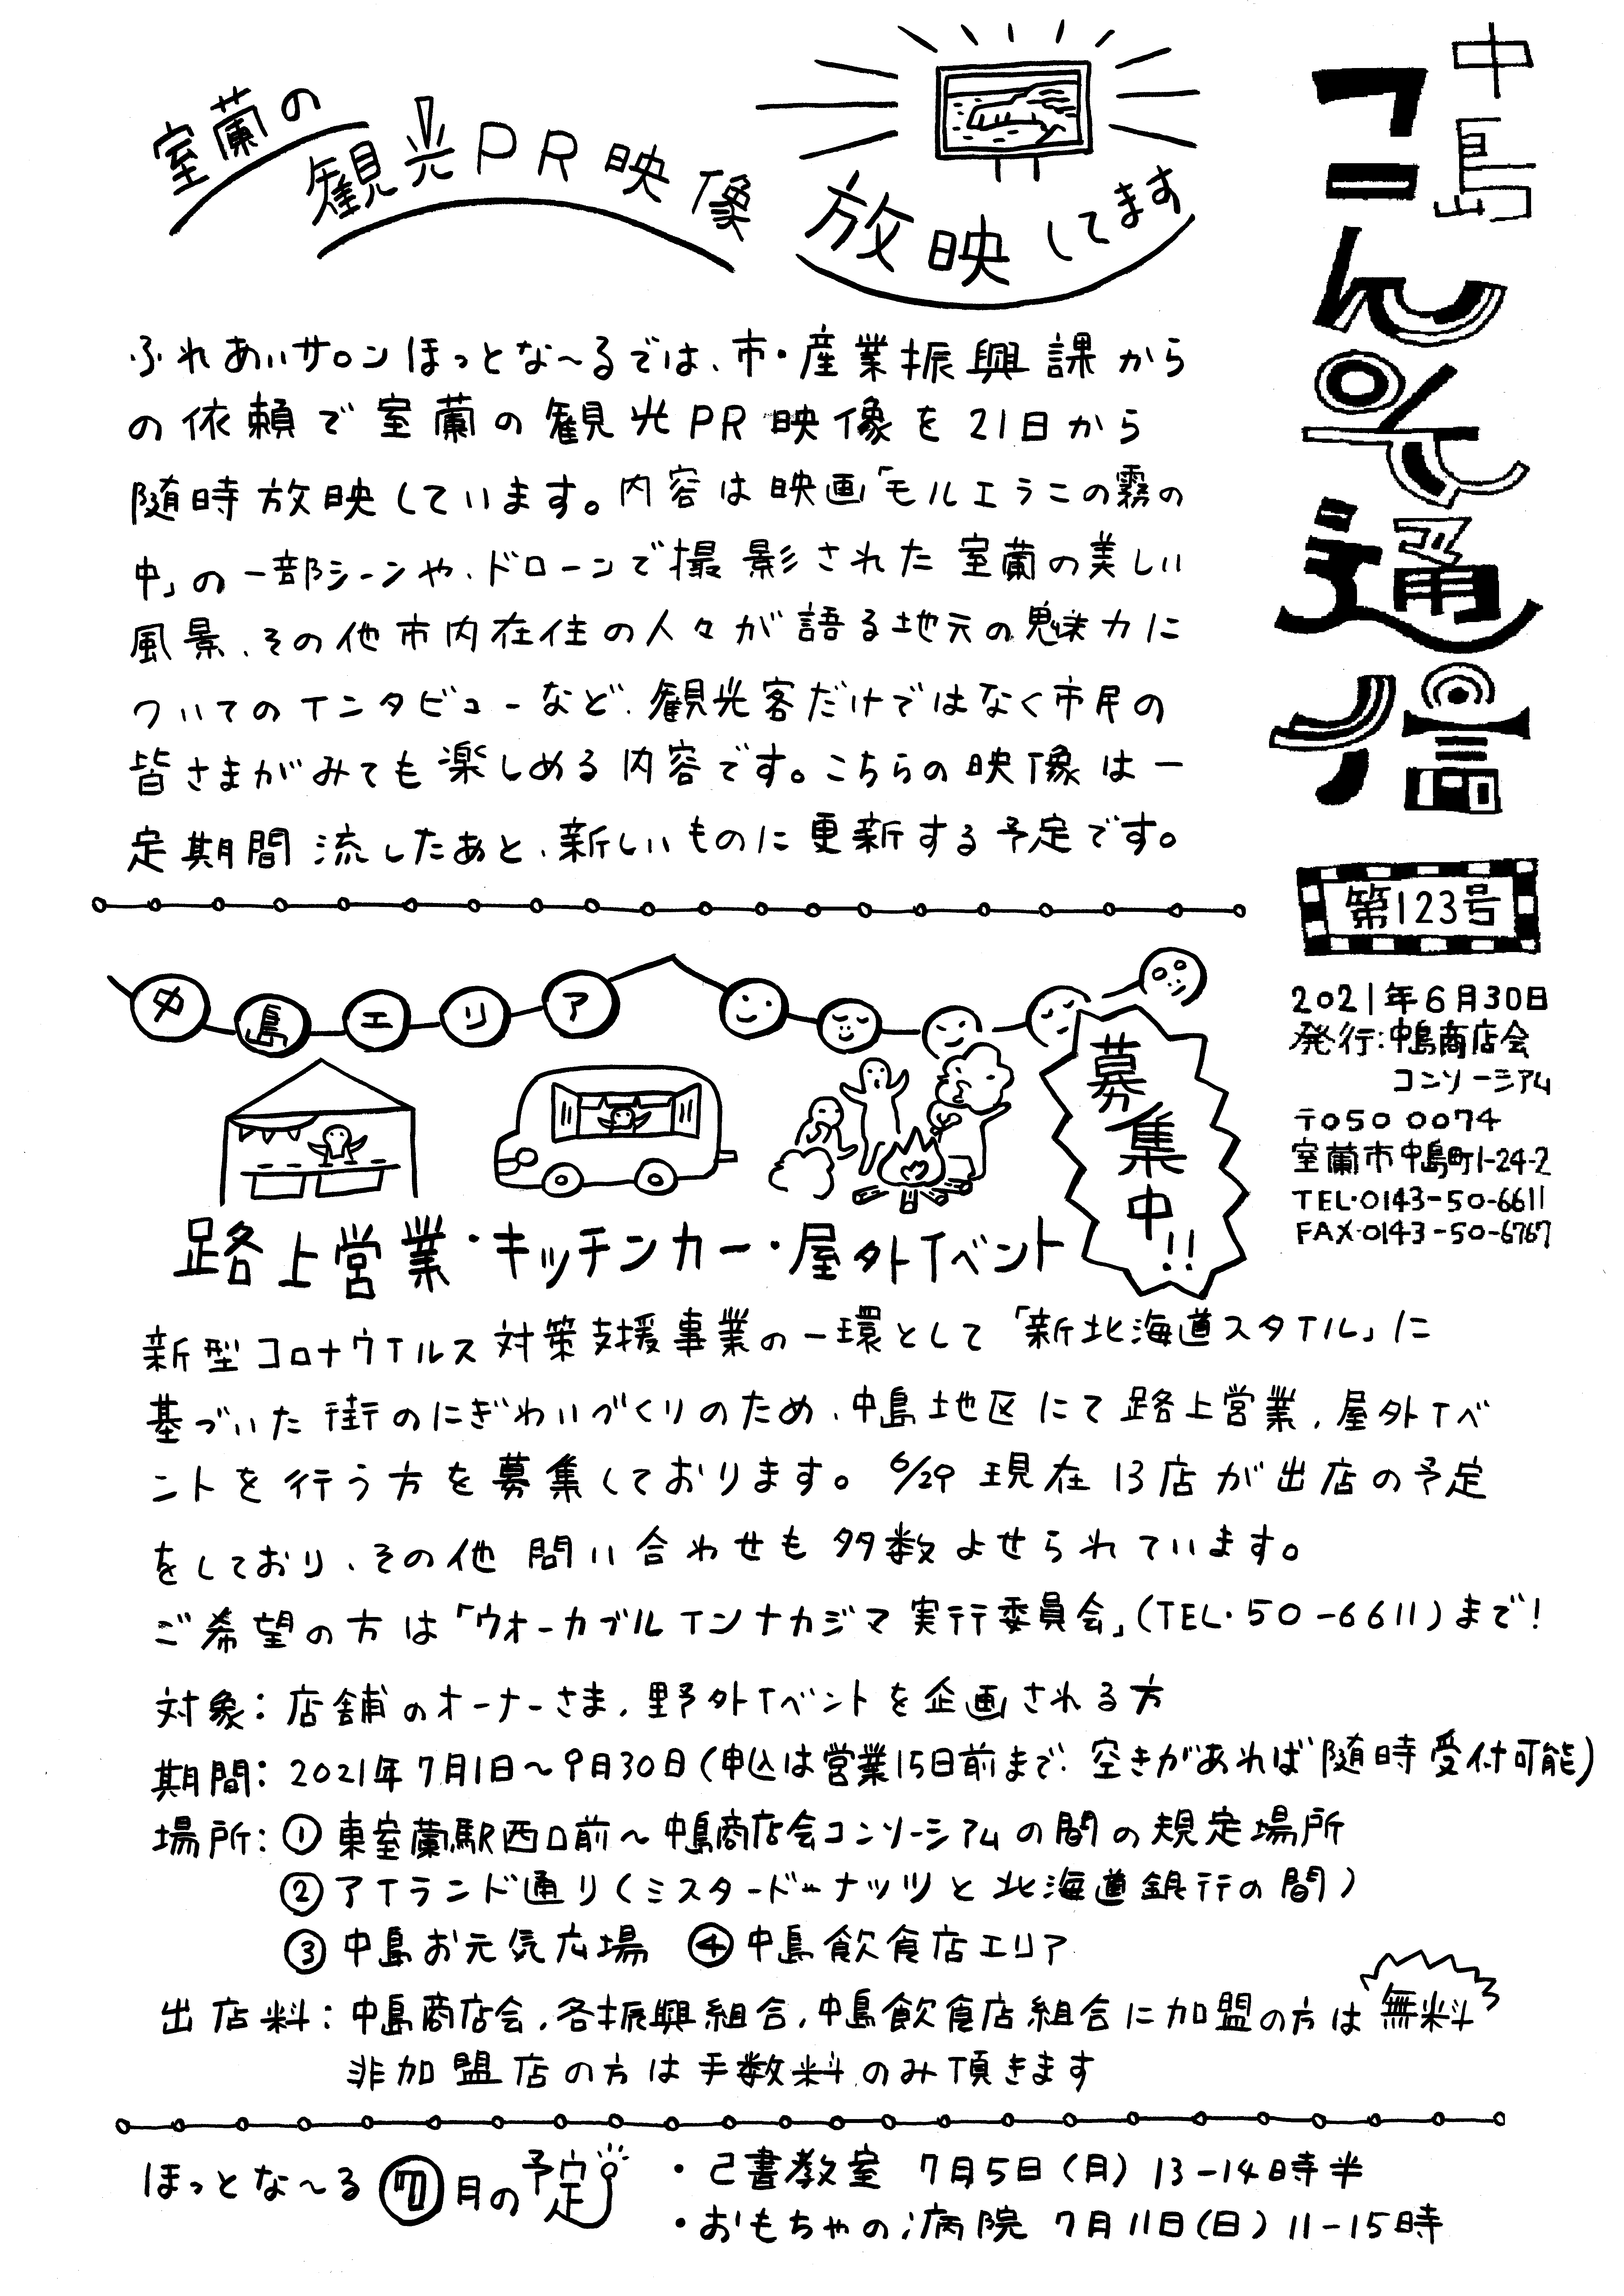 中島
コンそ通信
第123号
2021年6月30日
発行:中島商店会
コンソーシアム
〒050 0074
室蘭市中島町1-24-2
TEL・0143-50-6611
FAX・0143-50-6767
室蘭の
観光PR映像
放映してます
ふれあいサロンほっとな〜るでは、市・産業振興課から
の依頼で室蘭の観光PR映像を21日から
随時放映しています。内容は映画「モルエラニの霧の
中」の一部シーンや、ドローンで撮影された室蘭の美しい
風景、その他市内在住の人々が語る地元の魅力に
ついてのインタビューなど、観光客だけではなく市民の
皆さまがみても楽しめる内容です。こちらの映像は一
定期間流したあと、新しいものに更新する予定です。
中島エリア
募集中!!
路上営業・キッチンカー・屋外イベント
新型コロナウイルス対策支援事業の一環として「新北海道スタイル」に
基づいた街のにぎわいづくりのため、中島地区にて路上営業、屋外イベ
ントを行う方を募集しております。6/29現在13店が出店の予定
をしており、その他問い合わせも多数よせられています。
ご希望の方は「ウォーカブルインナカジマ実行委員会」(TEL・50-6611)まで!
対象:店舗のオーナーさま、野外イベントを企画される方
期間:2021年7月1日〜9月30日(申込は営業15日前まで、空きがあれば随時受付可能)
場所:①東室蘭駅西口前〜中島商店会コンソーシアムの間の規定場所
②アイランド通り(ミスタードーナッツと北海道銀行の間)
③中島お元気広場 ④中島飲食店エリア
出店料:中島商店会、各振興組合、中島飲食店組合に加盟の方は無料
非加盟店の方は手数料のみ頂きます
ほっとな〜る7月の予定
・己書教室 7月5日(月)13-14時半
・おもちゃの病院 7月11日(日)11-15時